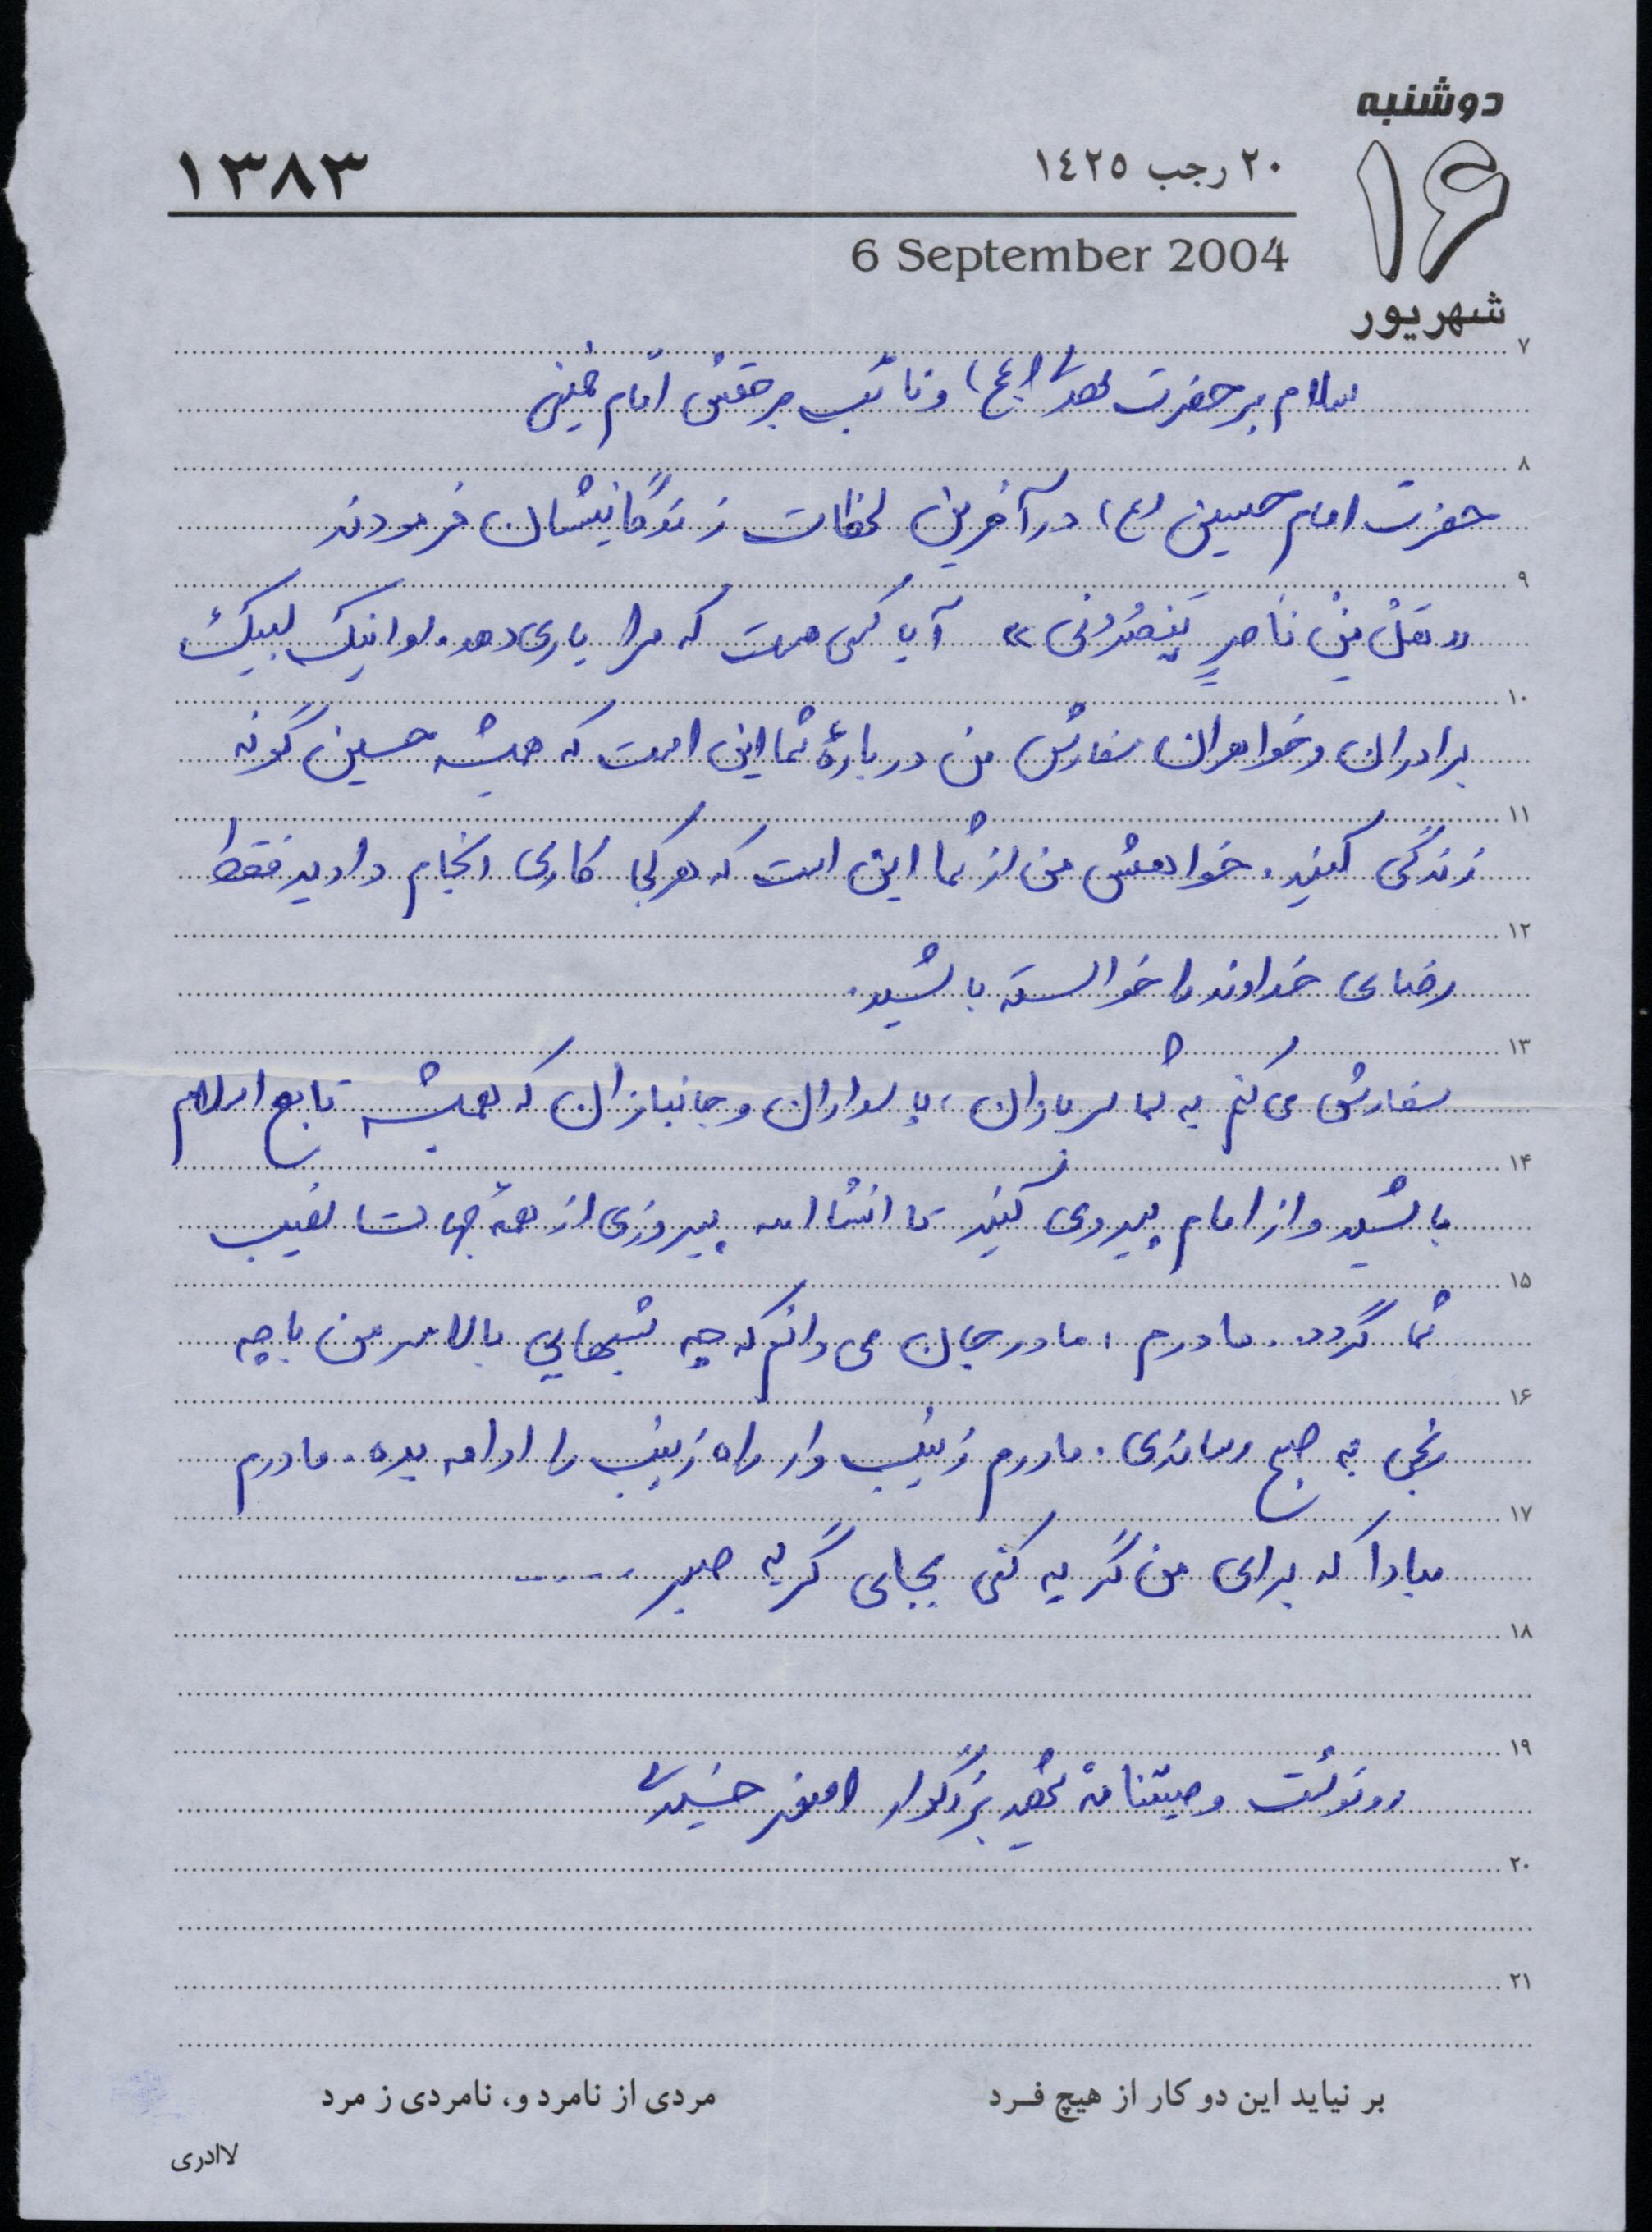 دوشنبه
۱۶
شهریور
۲۰ رجب ۱٤۲۵
۱۳۸۳
6 September 2004
۷
سلام بر حضرت مهدی (عج) و نائب برحقش امّام خمینی
۸
حضرت امام حسین (ع) در آخرین لحظات زندگانیشان فرمودند
۹
«هَلْ مِنْ نَاصِرٍ یَنْصُرُونی» آیا کسی هست که مرا یاری دهد. لبیک
۱۰
برادران و خواهران سفارش من دربارهٔ شما این است که همیشه حسین گونه
۱۱
زندگی کنید. خواهش من از شما این است که هر کجا کاری انجام دادید فقط
۱۲
رضای خداوند را خواسته باشید.
۱۳
سفارش می کنم به شما سربازان، پاسداران و جانبازان که همیشه تابع اسلام
۱۴
باشید و از امام پیروی کنید تا انشااله پیروزی از همهٔ جهات نصیب
۱۵
شما گردد. مادرم، مادر جان می دانم که چه شبهایی بالا سر من با چه
۱۶
رنجی به صبح رساندی. مادرم زینب وار راه زینب را ادامه بده. مادرم
۱۷
مبادا که برای من گریه کنی بجای گریه صبر ......
۱۸
۱۹
رونوشت وصیتنامهٔ شهید بزرگوار اصغر
۲۰
۲۱
بر نیاید این دو کار از هیچ فرد
مردی از نامرد و، نامردی ز مرد
لاادری